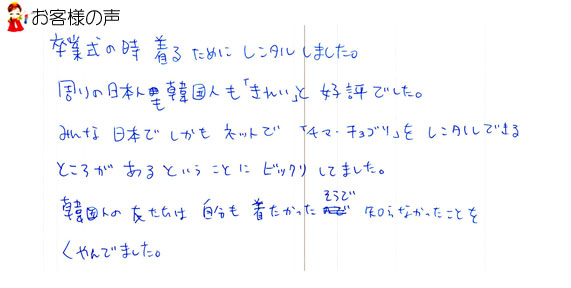 お客様の声
卒業式の時 着るためにレンタルしました。
周りの日本人も韓国人も「きれい」と好評でした。
みんな日本でしかもネットで「チマ・チョゴリ」をレンタルできる
ところがあるということにビックリしてました。
韓国人の友たちは自分も着たかったそうで知らなかったことを
くやんでました。